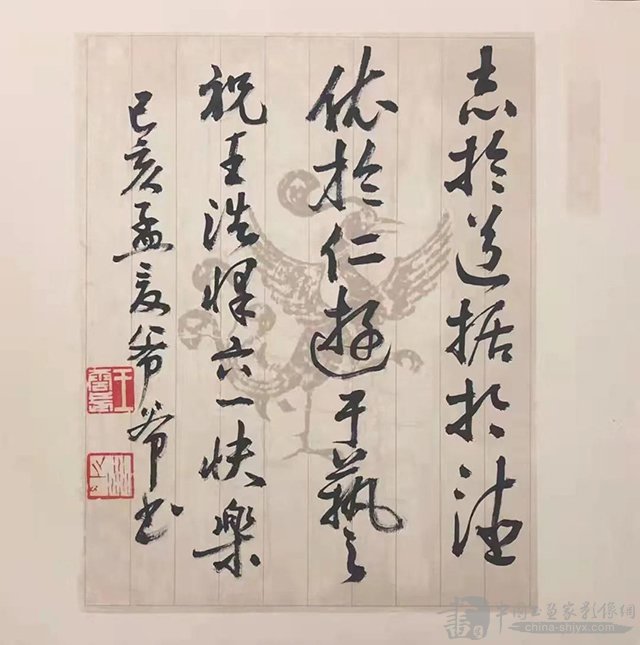 志於道据於德
依於仁遊于藝
祝王浩懌六一快樂
己亥孟夏爷爷书
中國書畫家影像網
china-shjyx.com